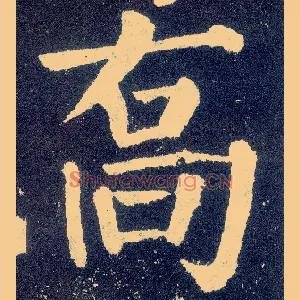 高
Shufawang.CN